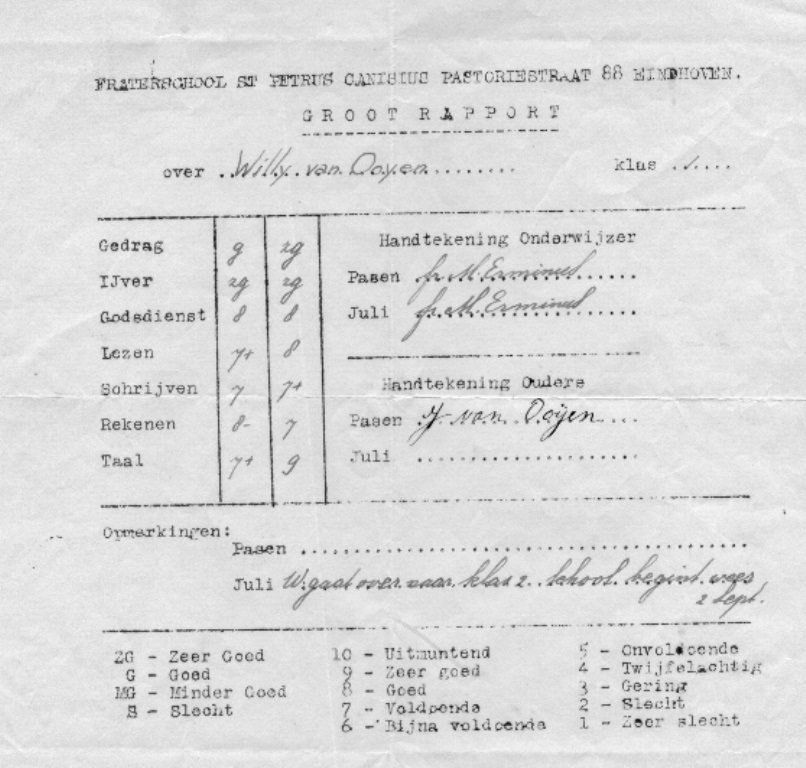 FRATERSCHOOL ST PETRUS CANISIUS PASTORIESTRAAT 88 EINDHOVEN.
GROOT RAPPORT
over ..Willy van Ooyen........ klas .1....
Gedrag g zg
IJver zg zg
Godsdienst 8 8
Lezen 7+ 8
Schrijven 7 7+
Rekenen 8- 7
Taal 7+ 9
Handtekening Onderwijzer
Pasen fr. M. Erminus
Juli fr. M. Erminus
Handtekening Ouders
Pasen J van Ooÿen
Juli ....................
Opmerkingen:
Pasen ........................................
Juli W. gaat over naar klas 2. School begint
2 Sept.
ZG - Zeer Goed
G - Goed
MG - Minder Goed
S - Slecht
10 - Uitmuntend
9 - Zeer goed
8 - Goed
7 - Voldoende
6 - Bijna voldoende
5 - Onvoldoende
4 - Twijfelachtig
3 - Gering
2 - Slecht
1 - Zeer slecht